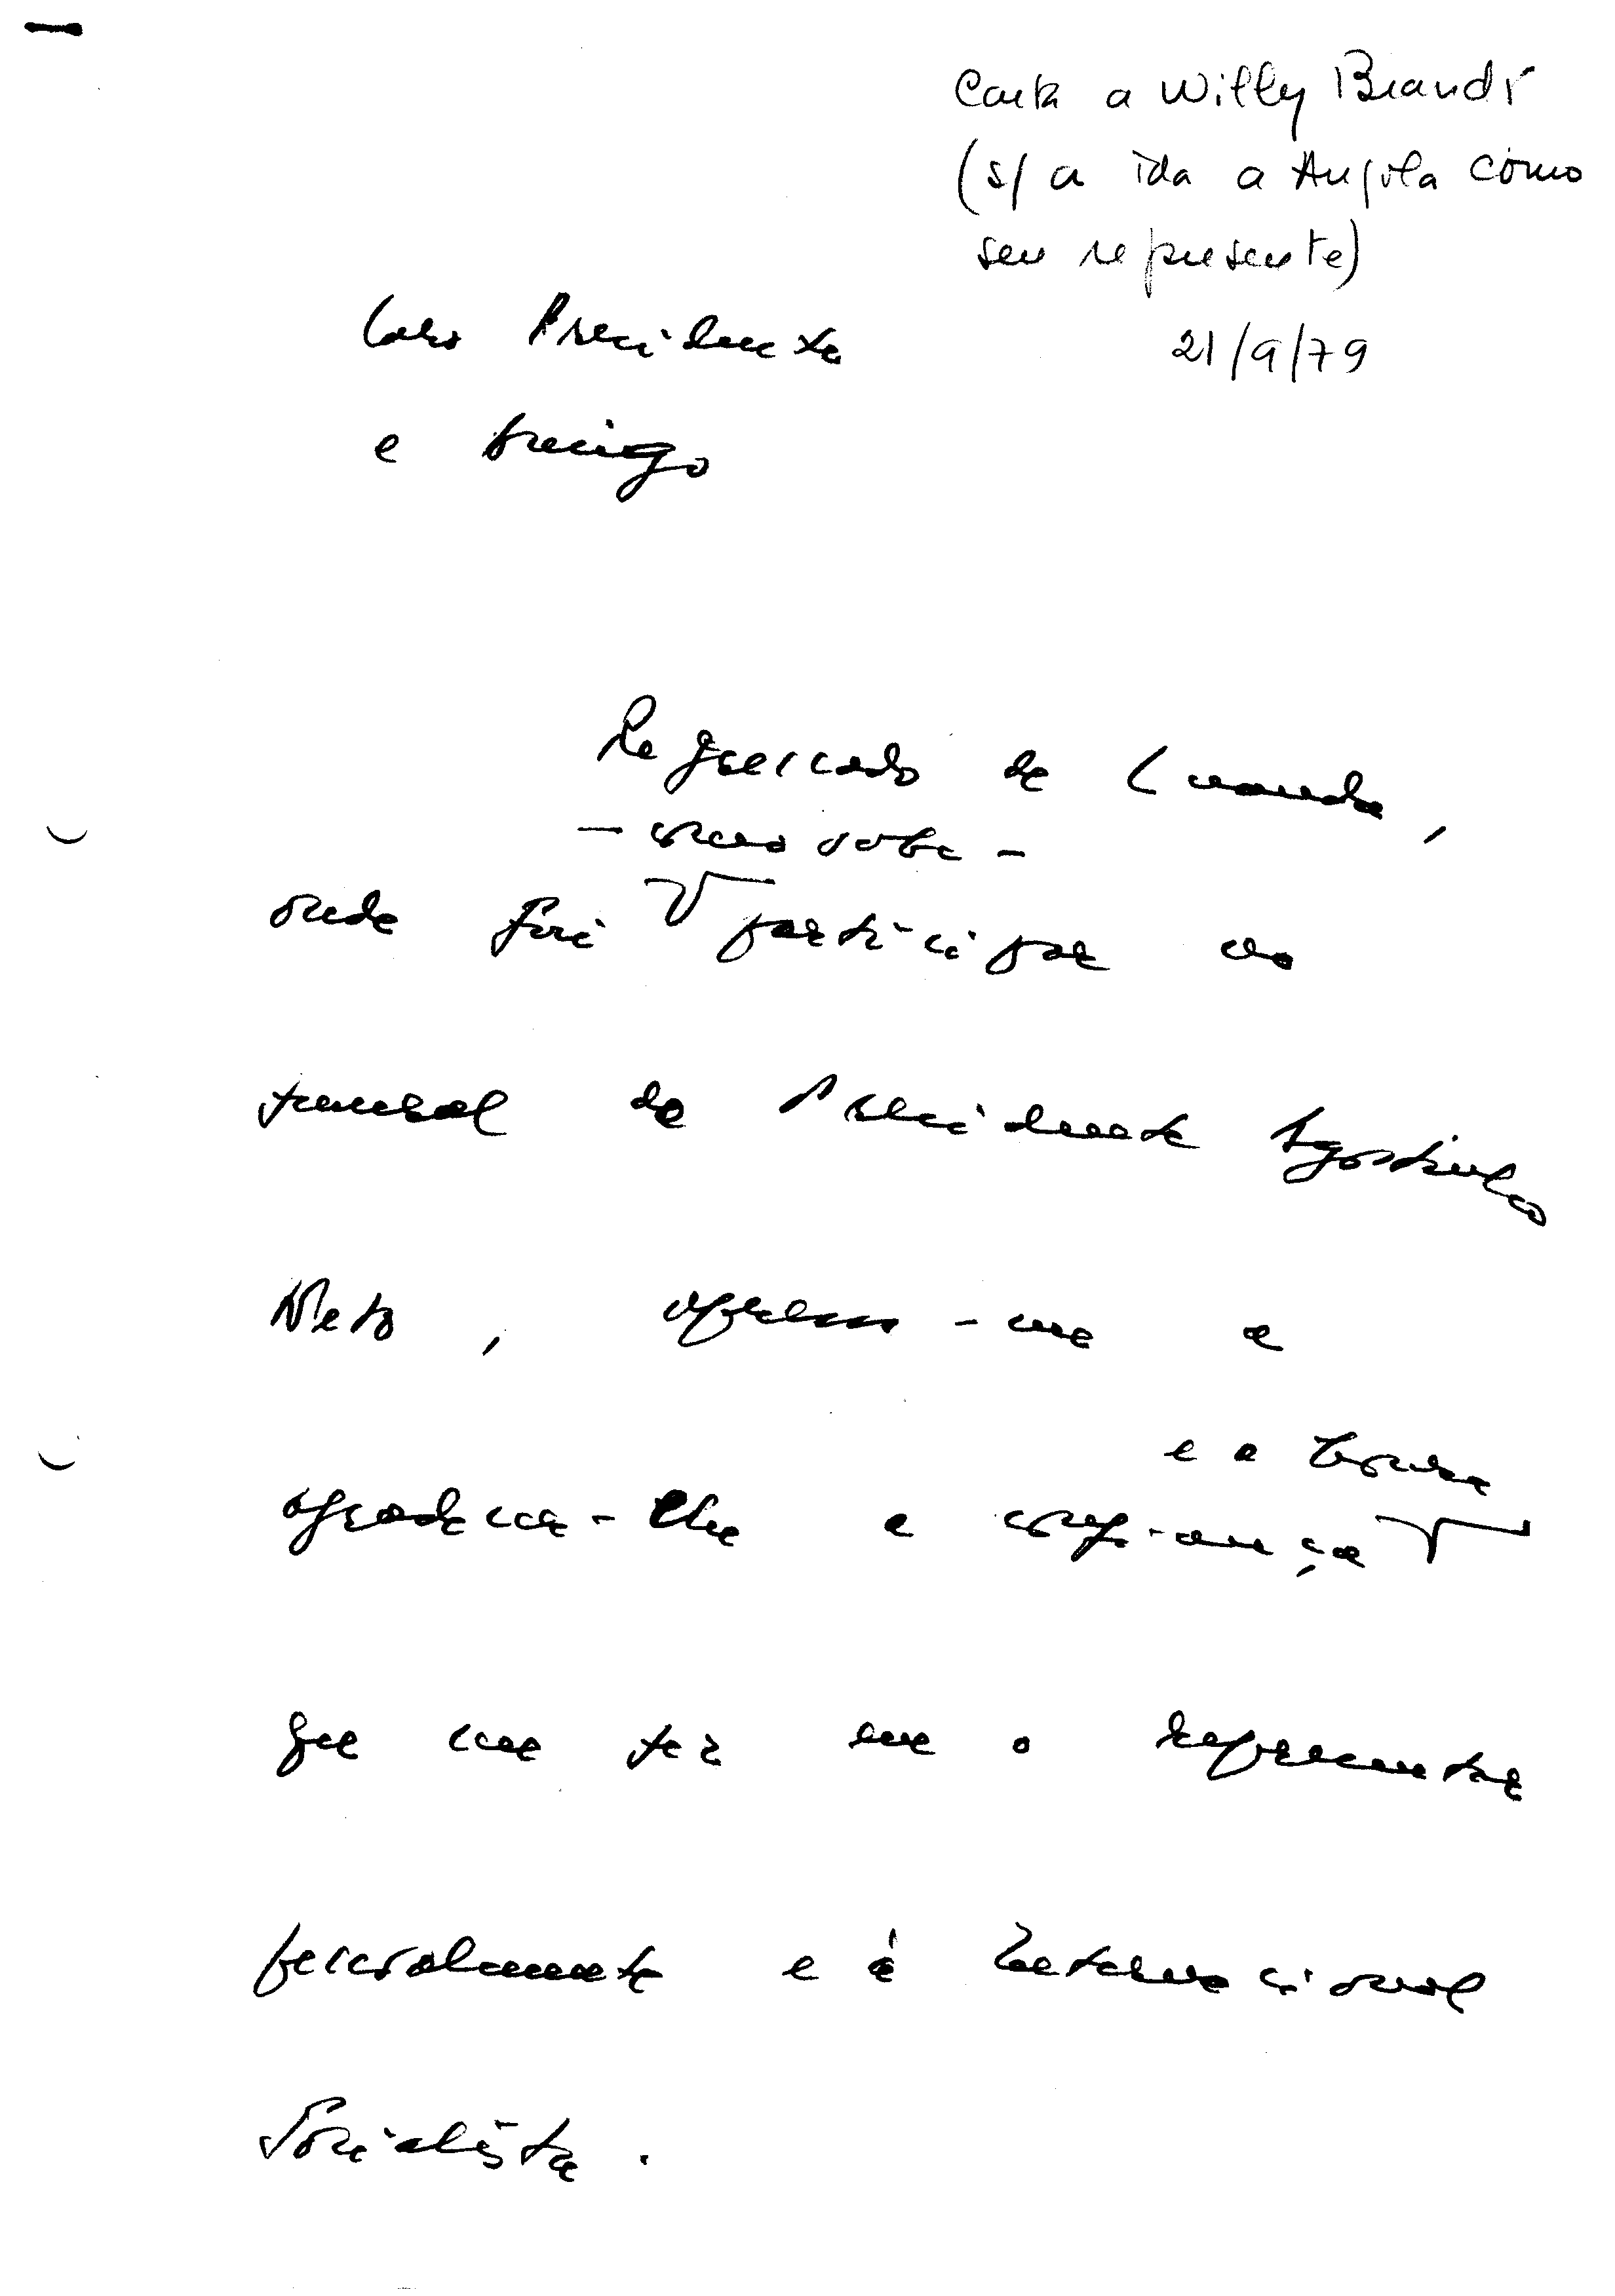 Carta a Willy Brandt
(s/ a ida a Angola como
seu represente)
21/9/79
Caro Presidente
e Amigo
Regressado de Luanda,
- como sabe -
onde fui participar no
funeral do Presidente Agostinho
Neto, apresso-me a
e a honra
agradecer-lhe a confiança
que me fez em o representar
pessoalmente e à Internacional
Socialista.